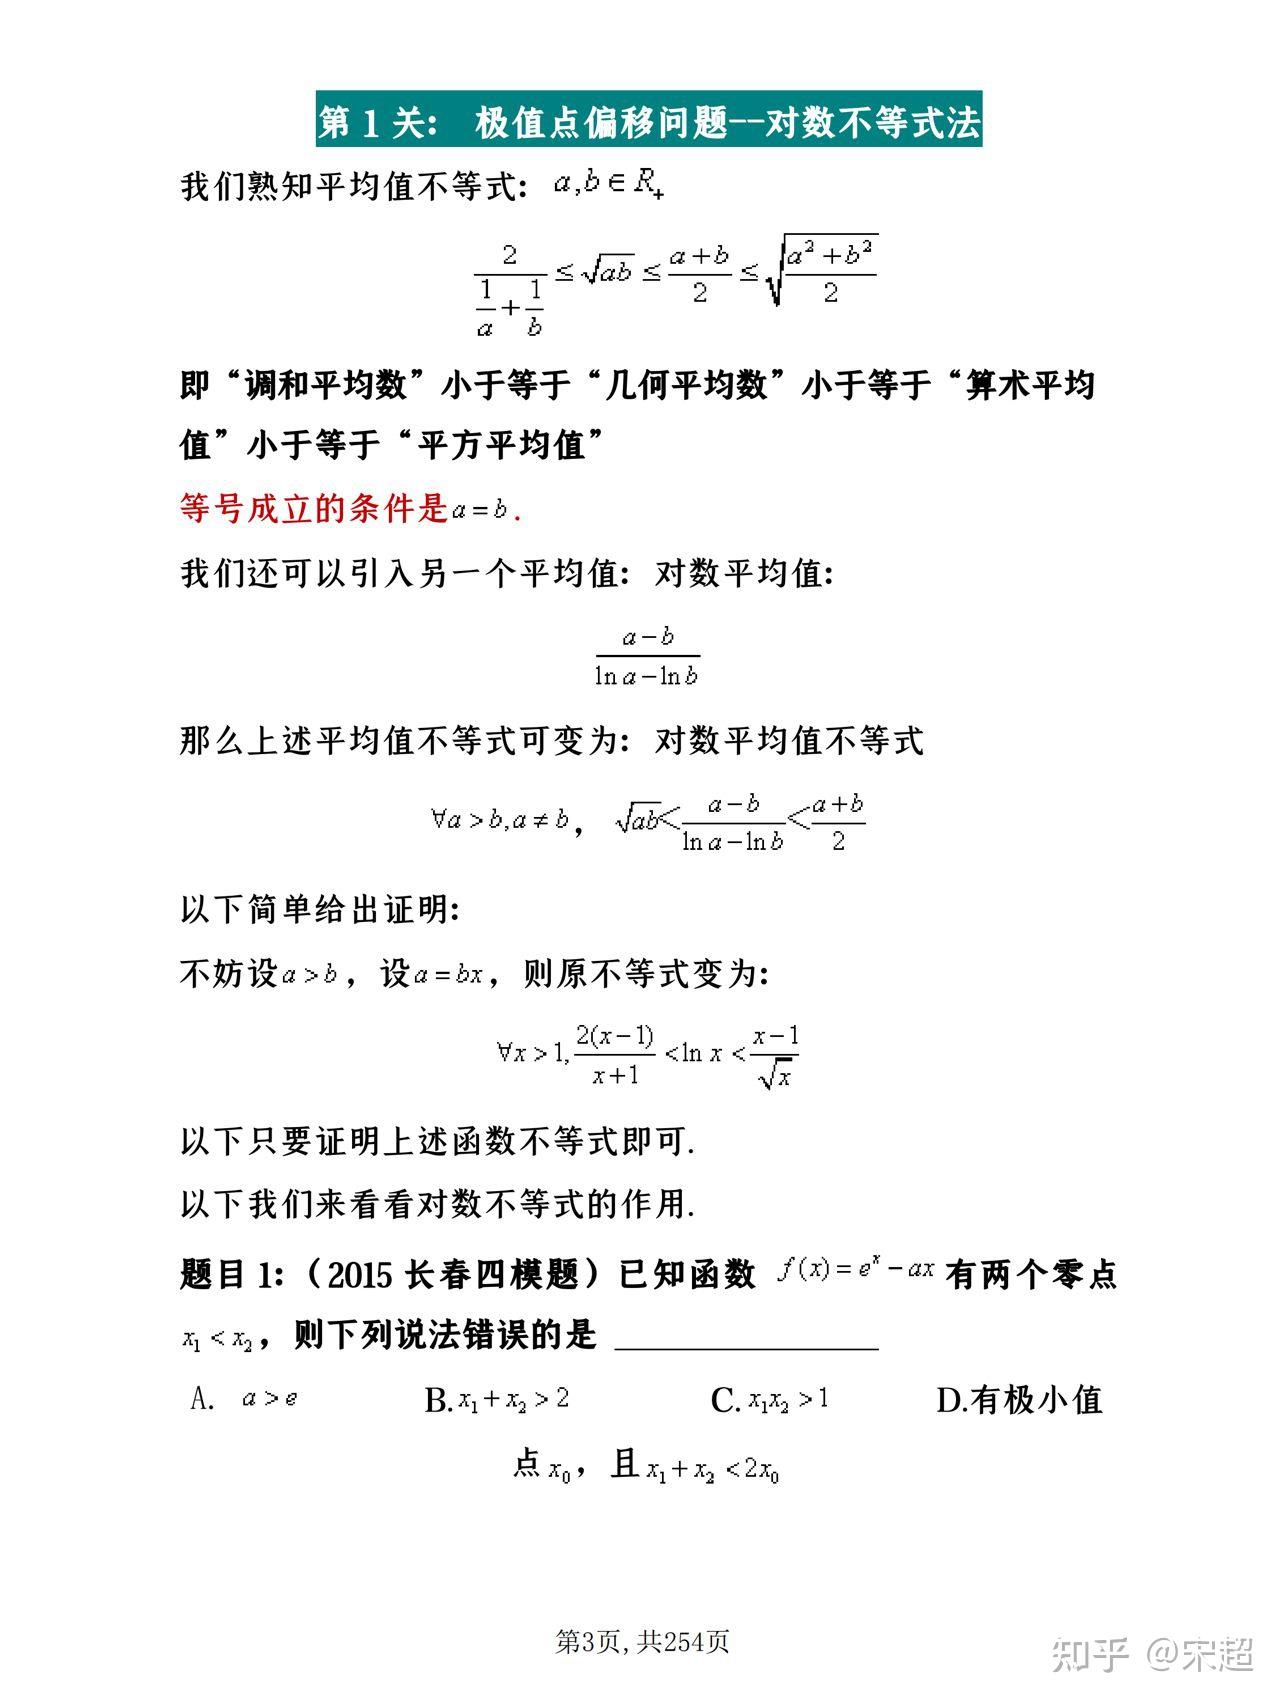 第 1 关： 极值点偏移问题--对数不等式法
我们熟知平均值不等式：a,b∈R₊
2/(1/a+1/b)≤√ab≤(a+b)/2≤√((a²+b²)/2)
即“调和平均数”小于等于“几何平均数”小于等于“算术平均
值”小于等于“平方平均值”
等号成立的条件是a=b.
我们还可以引入另一个平均值：对数平均值：
(a-b)/(ln a-ln b)
那么上述平均值不等式可变为：对数平均值不等式
∀a>b,a≠b， √ab<(a-b)/(ln a-ln b)<(a+b)/2
以下简单给出证明：
不妨设a>b，设a=bx，则原不等式变为：
∀x>1,2(x-1)/(x+1)<ln x<(x-1)/√x
以下只要证明上述函数不等式即可.
以下我们来看看对数不等式的作用.
题目 1：（2015 长春四模题）已知函数 f(x)=eˣ-ax 有两个零点
x₁<x₂，则下列说法错误的是 ________
A. a>e B.x₁+x₂>2 C.x₁x₂>1 D.有极小值
点x₀，且x₁+x₂<2x₀
第3页,共254页
知乎 @宋超